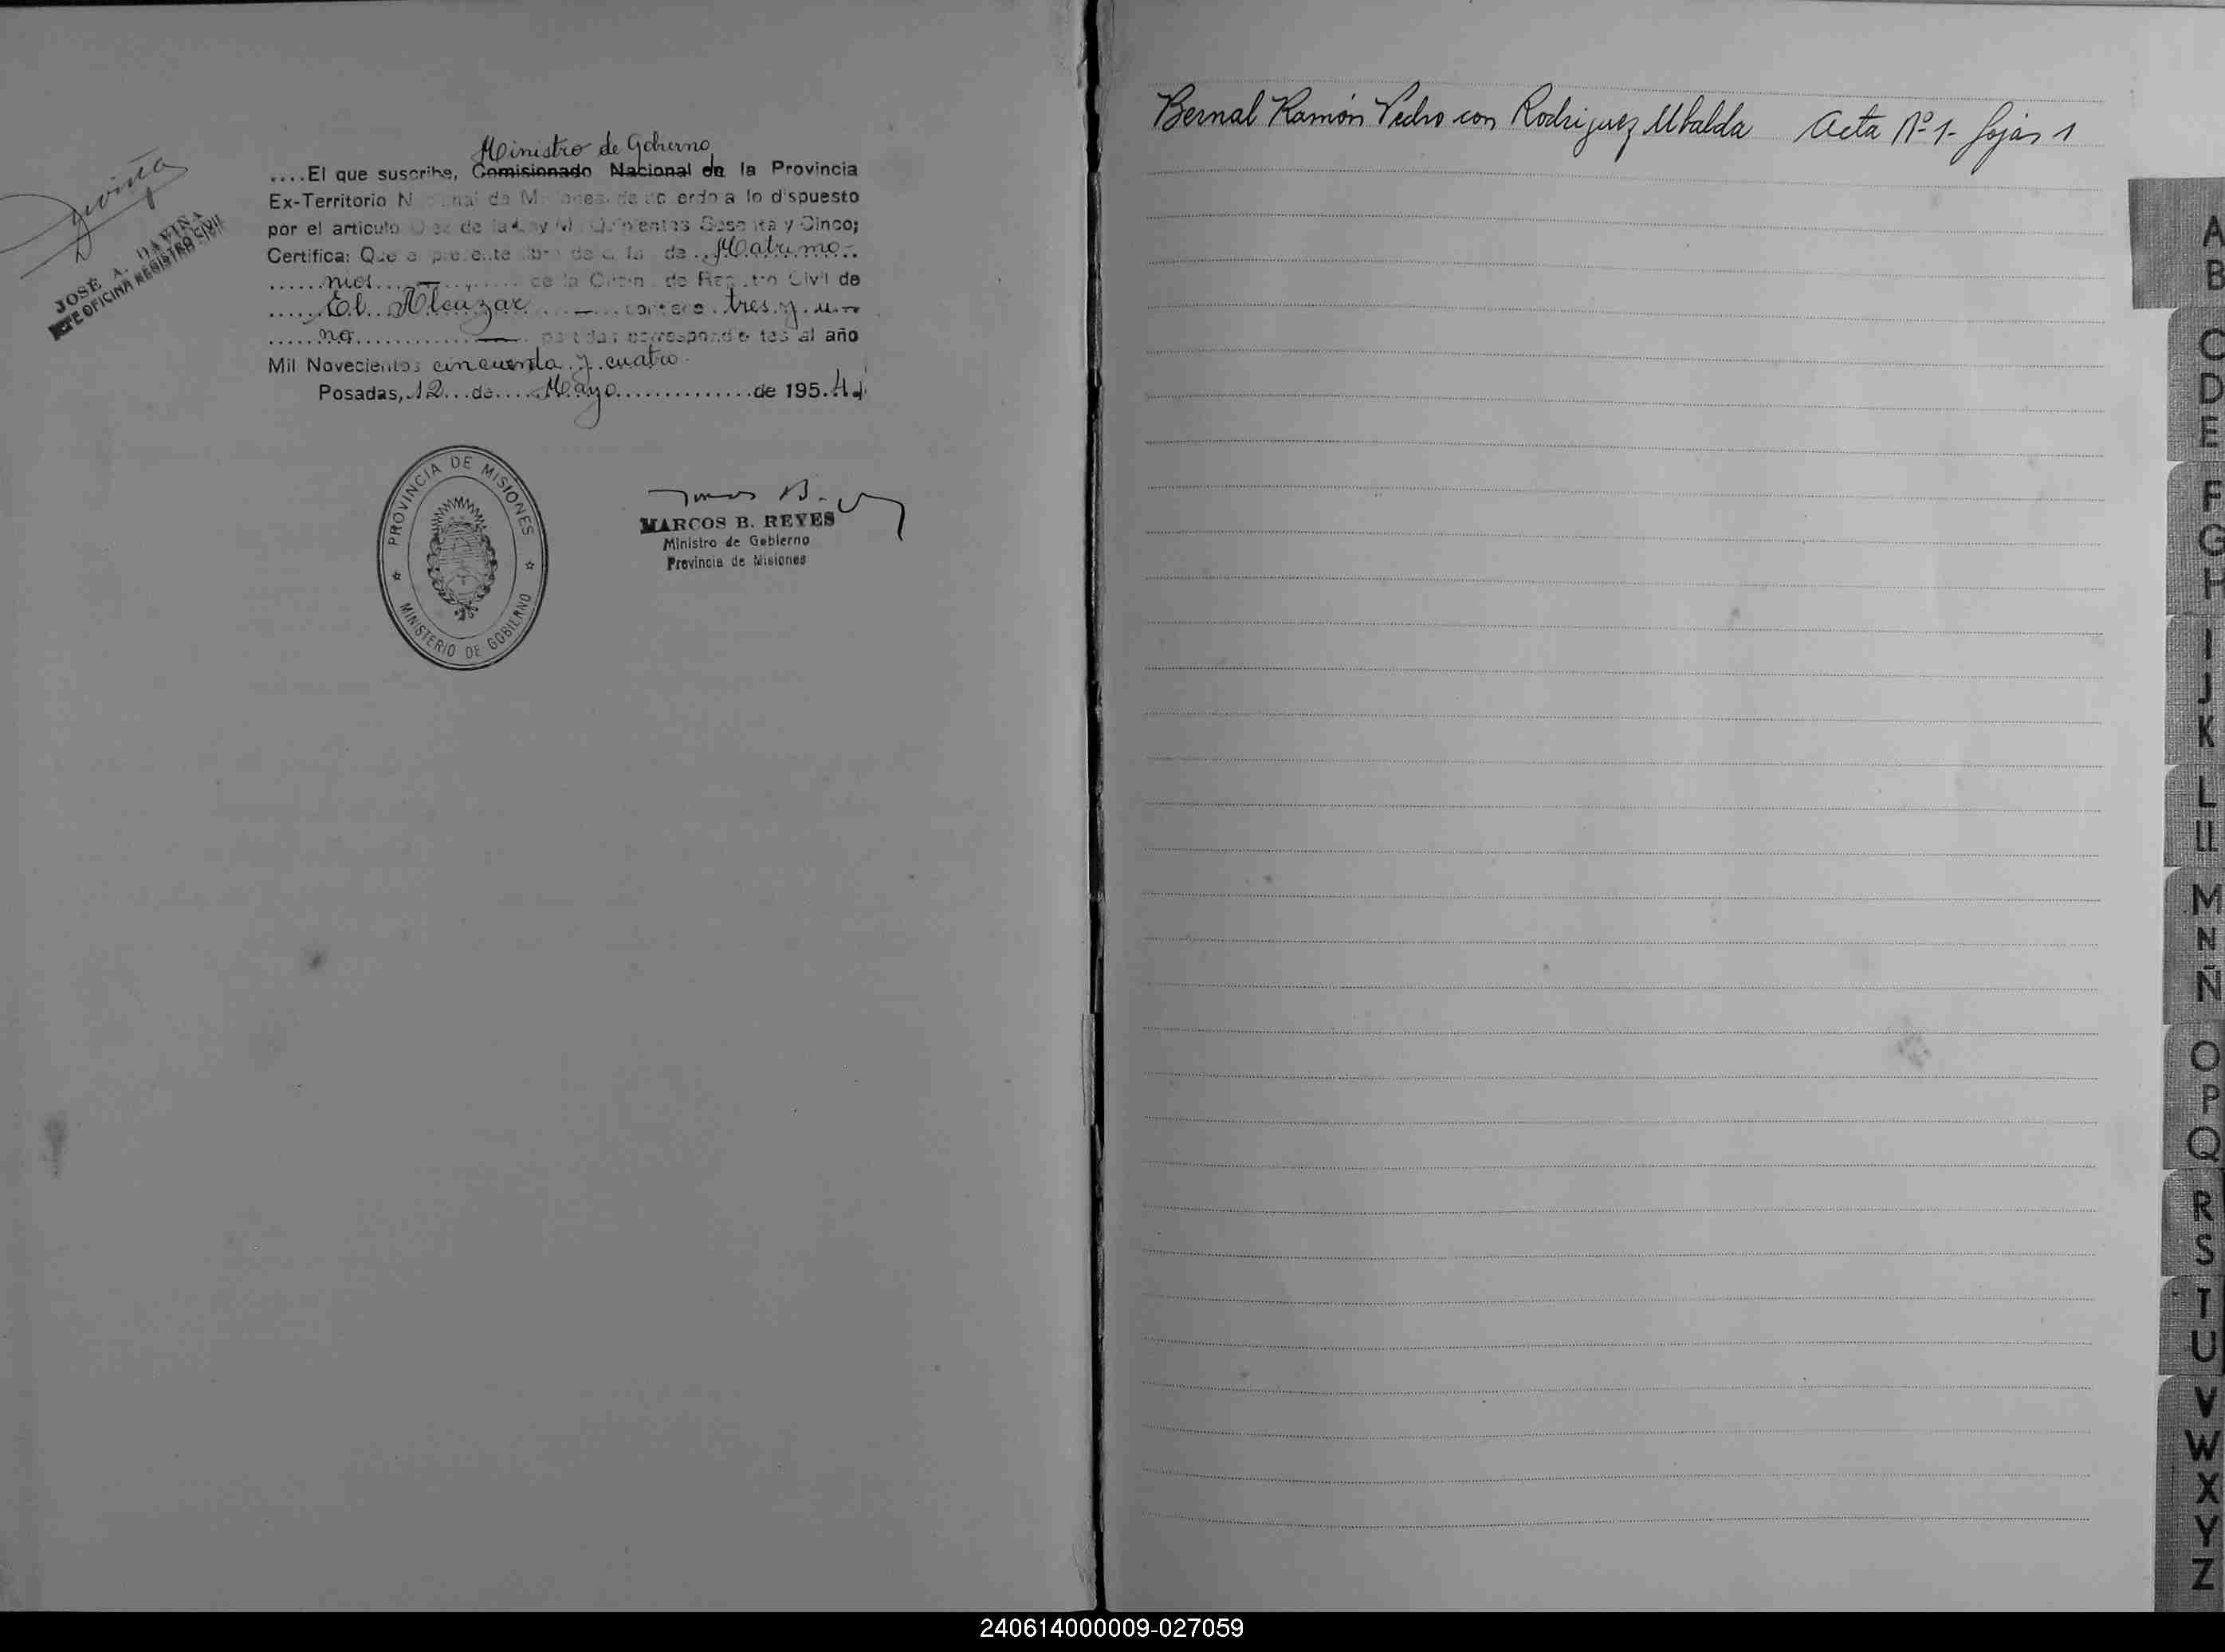 Daviña
JOSÉ A. DAVIÑA
JEFE OFICINA REGISTRO CIVIL
Ministro de Gobierno
....El que suscribe, Comisionado Nacional en la Provincia
Ex-Territorio Nacional de Misiones, de acuerdo a lo dispuesto
por el artículo Diez de la Ley Mil Quinientos Sesenta y Cinco;
Certifica: Que el presente libro de de ..Matrimo-
......nios......... de la Oficina de Registro Civil de
......El Alcázar........ contiene .tres y u-
......no............ partidas correspondientes al año
Mil Novecientos cincuenta y cuatro
Posadas, 12...de....Mayo..............de 195.4.
PROVINCIA DE MISIONES
MINISTERIO DE GOBIERNO
MARCOS B. REYES
Ministro de Gobierno
Provincia de Misiones
Bernal Ramón Pedro con Rodriguez Ubalda Acta Nº 1- fojas 1
A
B
C
D
E
F
G
H
I
J
K
L
Ll
M
N
Ñ
O
P
Q
R
S
T
U
V
W
X
Y
Z
240614000009-027059